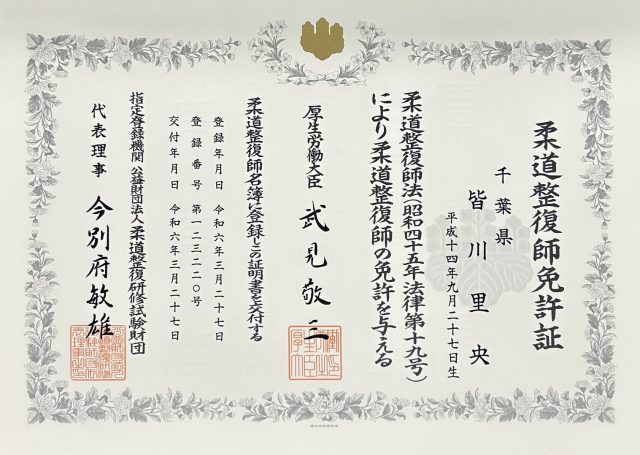 柔道整復師免許証
千葉県
皆川里央
平成十四年九月二十七日生
柔道整復師法(昭和四十五年法律第十九号)
により柔道整復師の免許を与える
厚生労働大臣 武見敬三
柔道整復師名簿に登録しこの証明書を交付する
登録年月日 令和六年三月二十七日
登録番号 第一二三二二〇号
交付年月日 令和六年三月二十七日
指定登録機関 公益財団法人柔道整復研修試験財団
代表理事 今別府敏雄